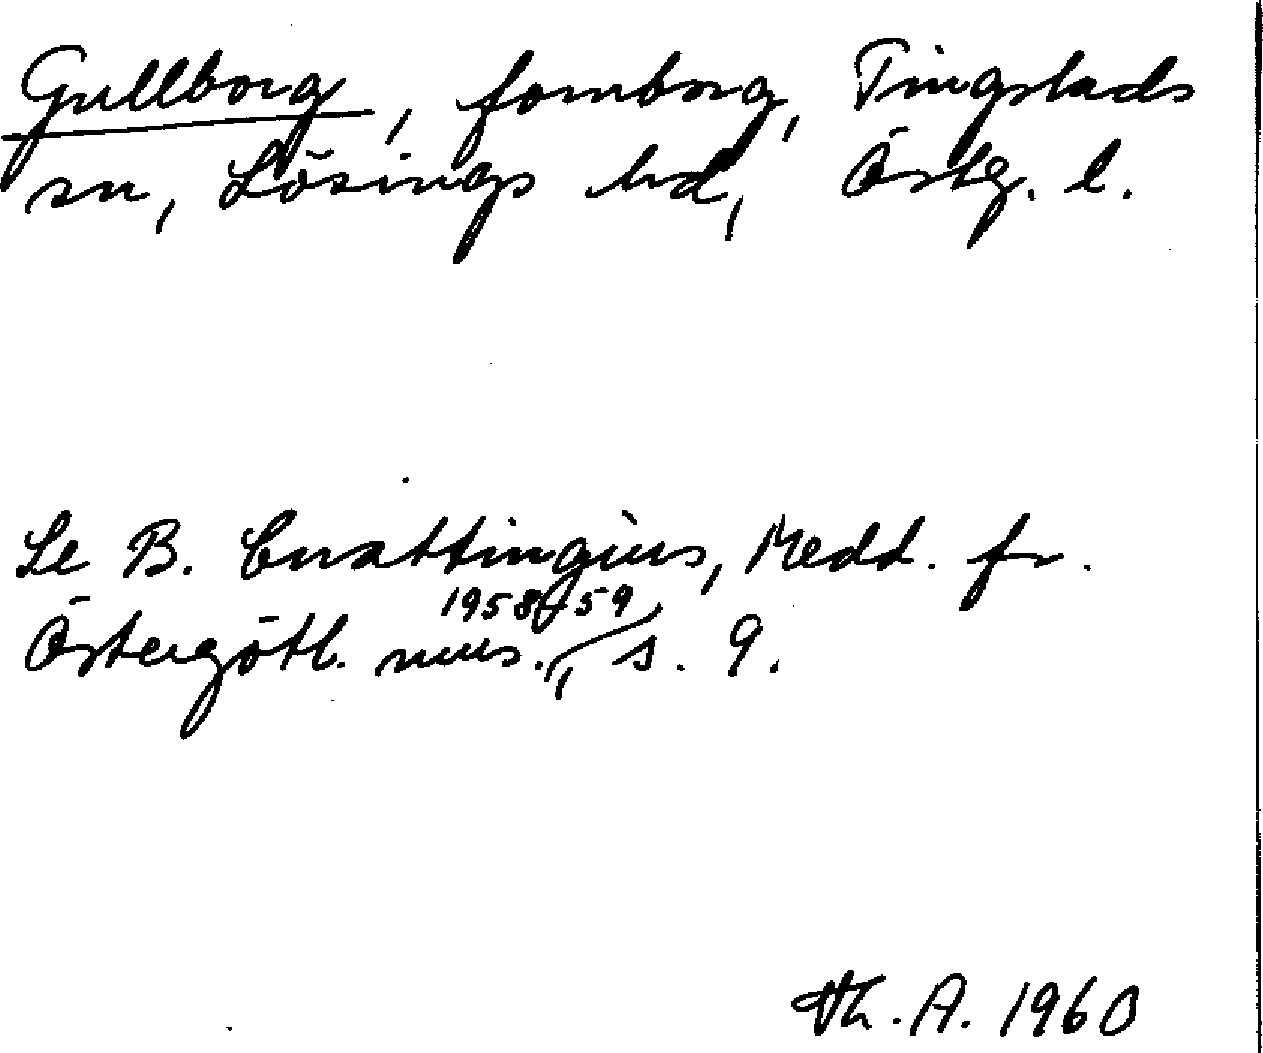 Gullborg, fornborg, Tingstads
sn, Lösings hd, Östg. l.
Se B. Cnattingius, Medd. fr.
Östergötl. mus., 1958-59, s. 9.
Th. A. 1960